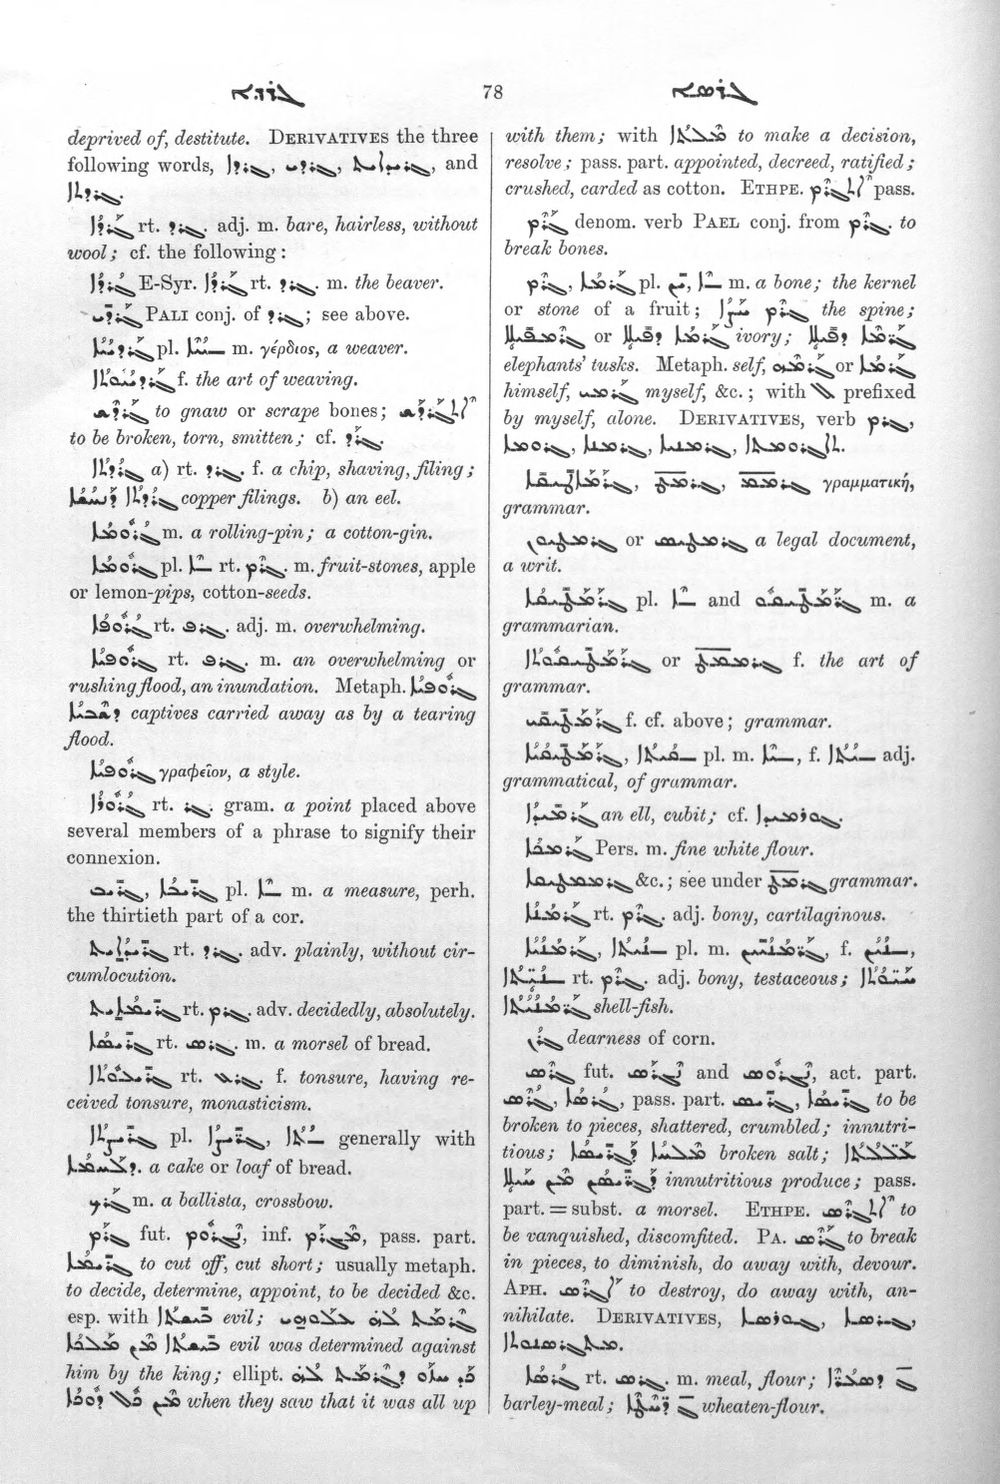 ܓܪܕܐ 78 ܓܪܣܐ
deprived of, destitute. DERIVATIVES the three
following words, ܓܪܕܐ, ܓܪܕܝ, ܓܪܝܕܐܝܬ, and
ܓܪܕܬܐ.
ܓܪܕܐ rt. ܓܪܕ. adj. m. bare, hairless, without
wool; cf. the following:
ܓܪܕܐ E-Syr. ܓܪܕܐ rt. ܓܪܕ. m. the beaver.
ܓܪܕܝ PALI conj. of ܓܪܕ; see above.
ܓܪܕܝܐ pl. ܝܐ— m. γέρδιος, a weaver.
ܓܪܕܝܘܬܐ f. the art of weaving.
ܓܪܕܡ to gnaw or scrape bones; ܐܬܓܪܕܡ
to be broken, torn, smitten; cf. ܓܪܕ.
ܓܪܕܬܐ a) rt. ܓܪܕ. f. a chip, shaving, filing;
ܓܪܕܬܐ ܕܢܚܫܐ copper filings. b) an eel.
ܓܪܘܡܐ m. a rolling-pin; a cotton-gin.
ܓܪܘܡܐ pl. ܐ— rt. ܓܪܡ. m. fruit-stones, apple
or lemon-pips, cotton-seeds.
ܓܪܘܦܐ rt. ܓܪܦ. adj. m. overwhelming.
ܓܪܘܦܝܐ rt. ܓܪܦ. m. an overwhelming or
rushing flood, an inundation. Metaph. ܓܪܘܦܝܐ
ܕܫܒܝܐ captives carried away as by a tearing
flood.
ܓܪܘܦܝܐ γραφεῖον, a style.
ܓܪܘܪܐ rt. ܓܪ. gram. a point placed above
several members of a phrase to signify their
connexion.
ܓܪܝܒ, ܓܪܝܒܐ pl. ܐ— m. a measure, perh.
the thirtieth part of a cor.
ܓܪܝܕܐܝܬ rt. ܓܪܕ. adv. plainly, without cir-
cumlocution.
ܓܪܝܡܐܝܬ rt. ܓܪܡ. adv. decidedly, absolutely.
ܓܪܝܣܐ rt. ܓܪܣ. m. a morsel of bread.
ܓܪܝܥܘܬܐ rt. ܓܪܥ. f. tonsure, having re-
ceived tonsure, monasticism.
ܓܪܝܨܬܐ pl. ܓܪܝܨܐ, ܝܬܐ— generally with
ܕܠܚܡܐ. a cake or loaf of bread.
ܓܪܟ m. a ballista, crossbow.
ܓܪܡ fut. ܢܓܪܘܡ, inf. ܡܓܪܡ, pass. part.
ܓܪܝܡܐ to cut off, cut short; usually metaph.
to decide, determine, appoint, to be decided &c.
esp. with ܒܝܫܬܐ evil; ܓܪܡܬ ܠܗ ܥܠܘܗܝ
ܒܝܫܬܐ ܡܢ ܡܠܟܐ evil was determined against
him by the king; ellipt. ܟܕ ܚܙܘ ܕܓܪܡܬ ܠܗܘܢ
ܡܢ ܟܠ ܕܘܟܐ when they saw that it was all up
with them; with ܡܠܬܐ to make a decision,
resolve; pass. part. appointed, decreed, ratified;
crushed, carded as cotton. ETHPE. ܐܬܓܪܡ pass.
ܓܪܡ denom. verb PAEL conj. from ܓܪܡ. to
break bones.
ܓܪܡ, ܓܪܡܐ pl. ܝܢ, ܐ— m. a bone; the kernel
or stone of a fruit; ܓܪܡ ܚܨܐ the spine;
ܓܪܡܦܝܠܐ or ܓܪܡܐ ܕܦܝܠܐ ivory; ܓܪܡܐ ܕܦܝܠܐ
elephants' tusks. Metaph. self, ܓܪܡܗ or ܓܪܡܐ
himself, ܓܪܡܝ myself, &c.; with ܠ prefixed
by myself, alone. DERIVATIVES, verb ܓܪܡ,
ܓܪܘܡܐ, ܓܪܡܢܐ, ܓܪܡܢܝܐ, ܬܓܪܘܡܬܐ.
ܓܪܡܛܝܩܝ, γραμματική,
grammar.
or a legal document,
a writ.
ܓܪܡܛܝܩܐ pl. ܐ— and ܓܪܡܛܝܩܘ m. a
grammarian.
ܓܪܡܛܝܩܘܬܐ or f. the art of
grammar.
ܓܪܡܛܝܩܝ f. cf. above; grammar.
ܓܪܡܛܝܩܝܐ, pl. m. ܝܐ—, f. ܝܬܐ— adj.
grammatical, of grammar.
ܓܪܡܝܕܐ an ell, cubit; cf. ܓܘܪܡܝܕܐ.
ܓܪܡܟܐ Pers. m. fine white flour.
&c.; see under grammar.
ܓܪܡܢܐ rt. ܓܪܡ. adj. bony, cartilaginous.
ܓܪܡܢܝܐ, ܢܝܬܐ— pl. m. ܓܪܡܢܝܢ, f. ܢܝܢ—,
ܢܝܬܐ— rt. ܓܪܡ. adj. bony, testaceous; ܚܝܘܬܐ
ܓܪܡܢܝܬܐ shell-fish.
ܓܪܢ dearness of corn.
ܓܪܣ fut. ܢܓܪܣ and ܢܓܪܘܣ, act. part.
ܓܪܣ, ܓܪܣܐ, pass. part. ܓܪܝܣ, ܓܪܝܣܐ to be
broken to pieces, shattered, crumbled; innutri-
tious; ܡܠܚܐ ܕܓܪܝܣܐ broken salt; ܥܠܠܬܐ
ܕܓܪܝܣܢ ܡܢ ܚܝܠܐ innutritious produce; pass.
part. = subst. a morsel. ETHPE. ܐܬܓܪܣ to
be vanquished, discomfited. PA. ܓܪܣ to break
in pieces, to diminish, do away with, devour.
APH. ܐܓܪܣ to destroy, do away with, an-
nihilate. DERIVATIVES, ܓܘܪܣܐ, ܓܪܝܣܐ,
ܡܬܓܪܣܢܘܬܐ.
ܓܪܣܐ rt. ܓܪܣ. m. meal, flour; ܓ ܕܣܥܪܐ
barley-meal; ܓ ܕܚܛܐ wheaten-flour.